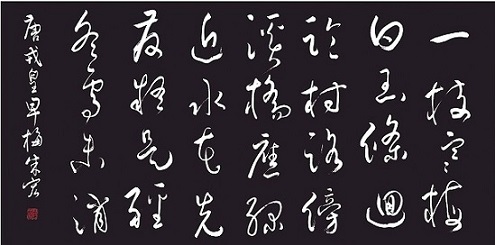 一枝寒梅
白玉條迴
臨村路傍
溪橋應緣
近水花先
發疑是經
冬雪未消
唐戎昱早梅